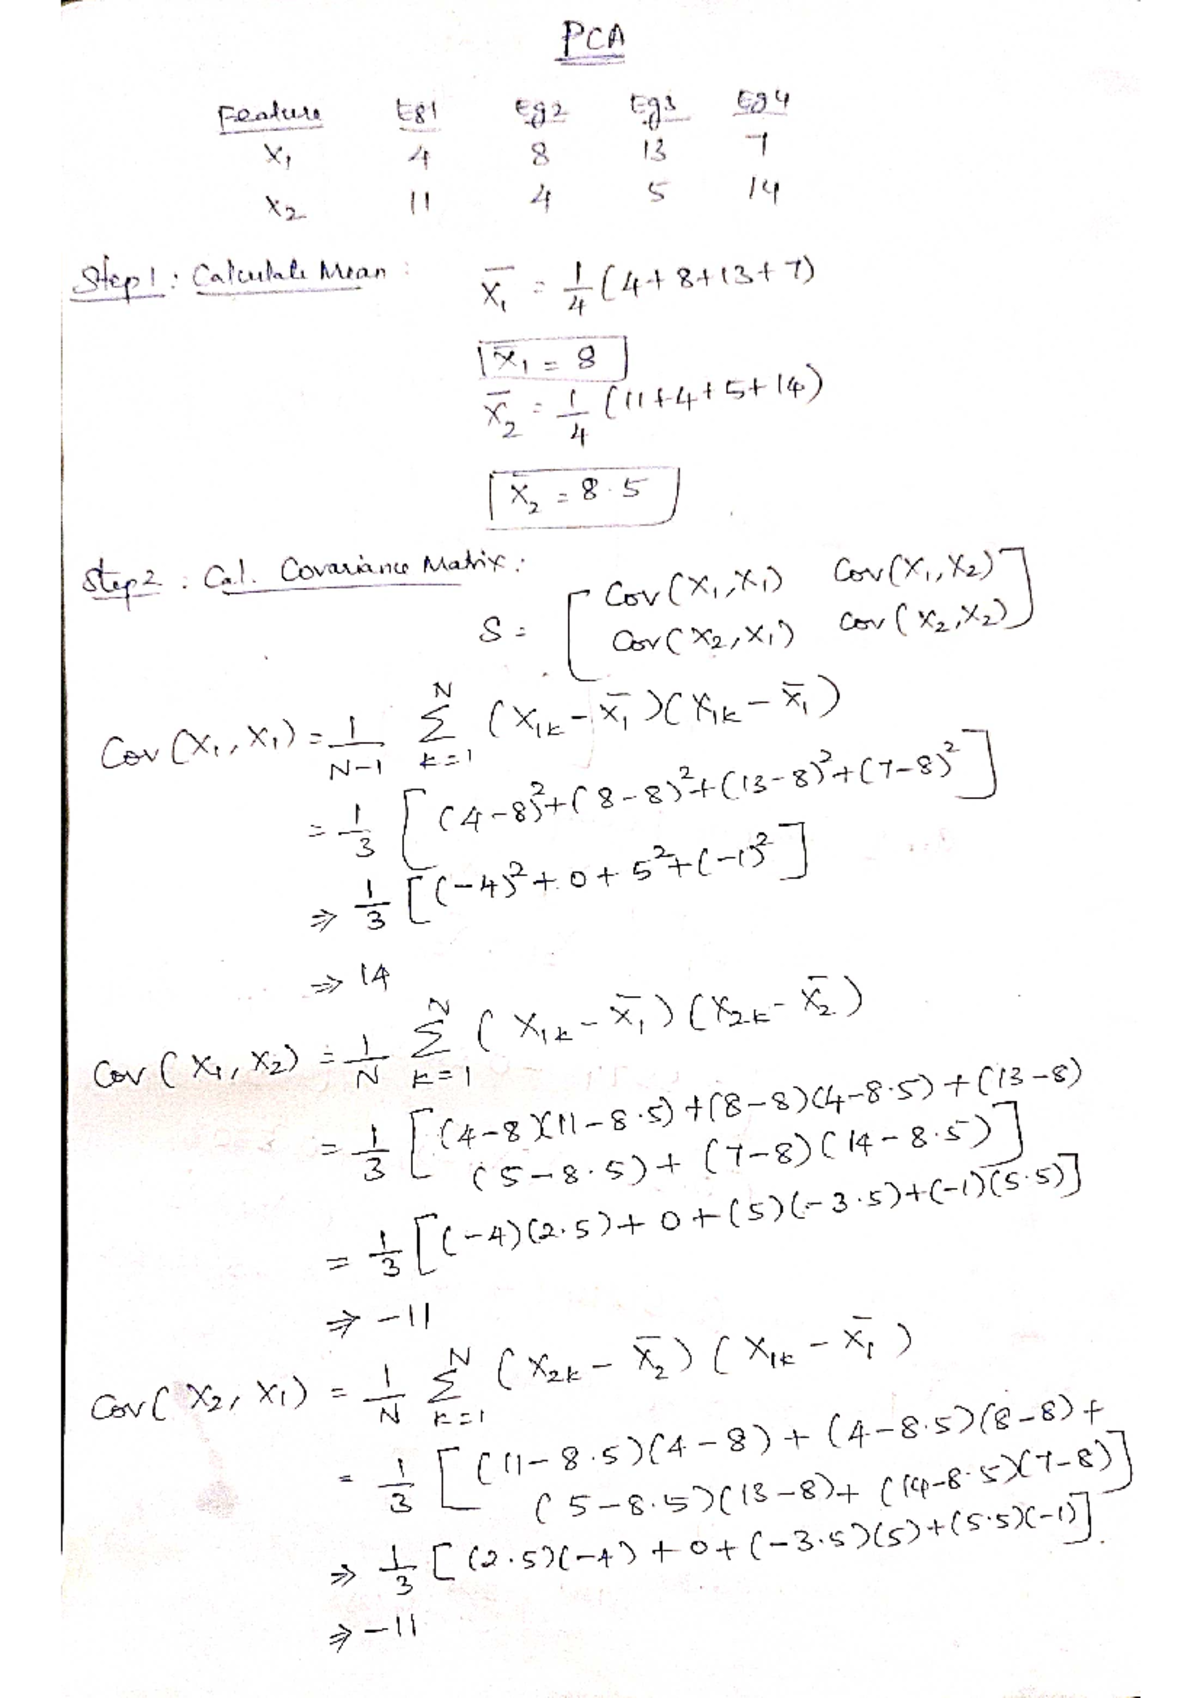 PCA
Feature Eg1 Eg2 Eg3 Eg4
X₁ 4 8 13 7
X₂ 11 4 5 14
Step1 : Calculate Mean :
X̄₁ = 1/4 (4+8+13+7)
X̄₁ = 8
X̄₂ = 1/4 (11+4+5+14)
X̄₂ = 8.5
Step2 : Cal. Covariance Matrix :
S = [ Cov(X₁,X₁) Cov(X₁,X₂)
Cov(X₂,X₁) Cov(X₂,X₂) ]
Cov(X₁,X₁) = 1/(N-1) Σ_{k=1}^{N} (X₁ₖ - X̄₁)(X₁ₖ - X̄₁)
= 1/3 [(4-8)²+(8-8)²+(13-8)²+(7-8)²]
⇒ 1/3 [(-4)²+0+5²+(-1)²]
⇒ 14
Cov(X₁,X₂) = 1/N Σ_{k=1}^{N} (X₁ₖ - X̄₁)(X₂ₖ - X̄₂)
= 1/3 [(4-8)(11-8.5)+(8-8)(4-8.5)+(13-8)
(5-8.5)+(7-8)(14-8.5)]
= 1/3 [(-4)(2.5)+0+(5)(-3.5)+(-1)(5.5)]
⇒ -11
Cov(X₂,X₁) = 1/N Σ_{k=1}^{N} (X₂ₖ - X̄₂)(X₁ₖ - X̄₁)
= 1/3 [(11-8.5)(4-8)+(4-8.5)(8-8)+
(5-8.5)(13-8)+(14-8.5)(7-8)]
⇒ 1/3 [(2.5)(-4)+0+(-3.5)(5)+(5.5)(-1)].
⇒ -11